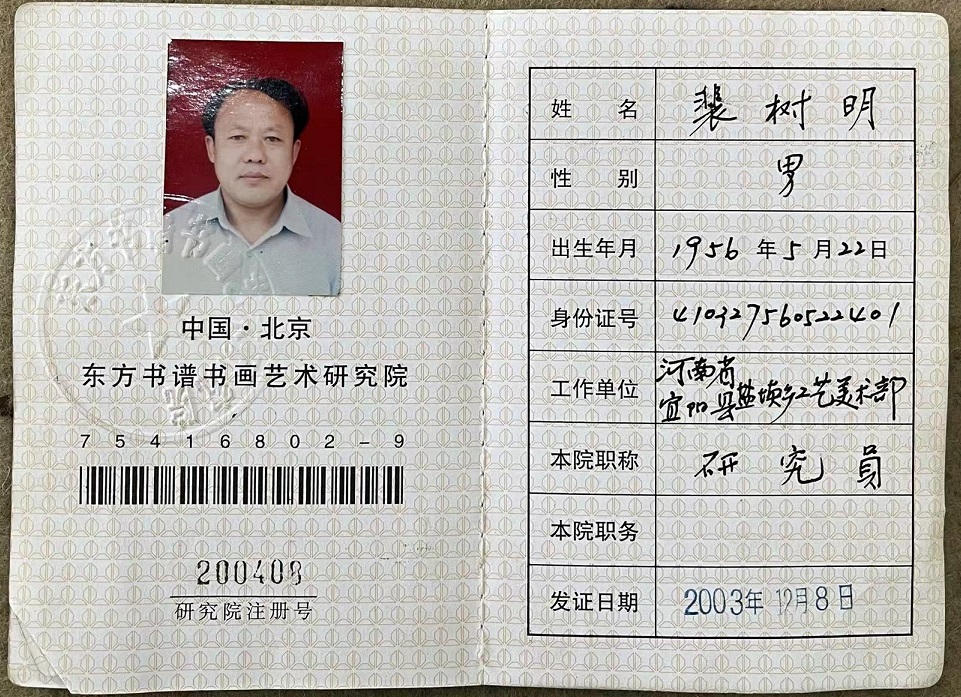 中国·北京
东方书谱书画艺术研究院
75416802-9
200408
研究院注册号
姓 名 裴树明
性 别 男
出生年月 1956年5月22日
身份证号 410327560522401
工作单位 河南省
宜阳县盐埌乡工艺美术部
本院职称 研究員
本院职务
发证日期 2003年12月8日